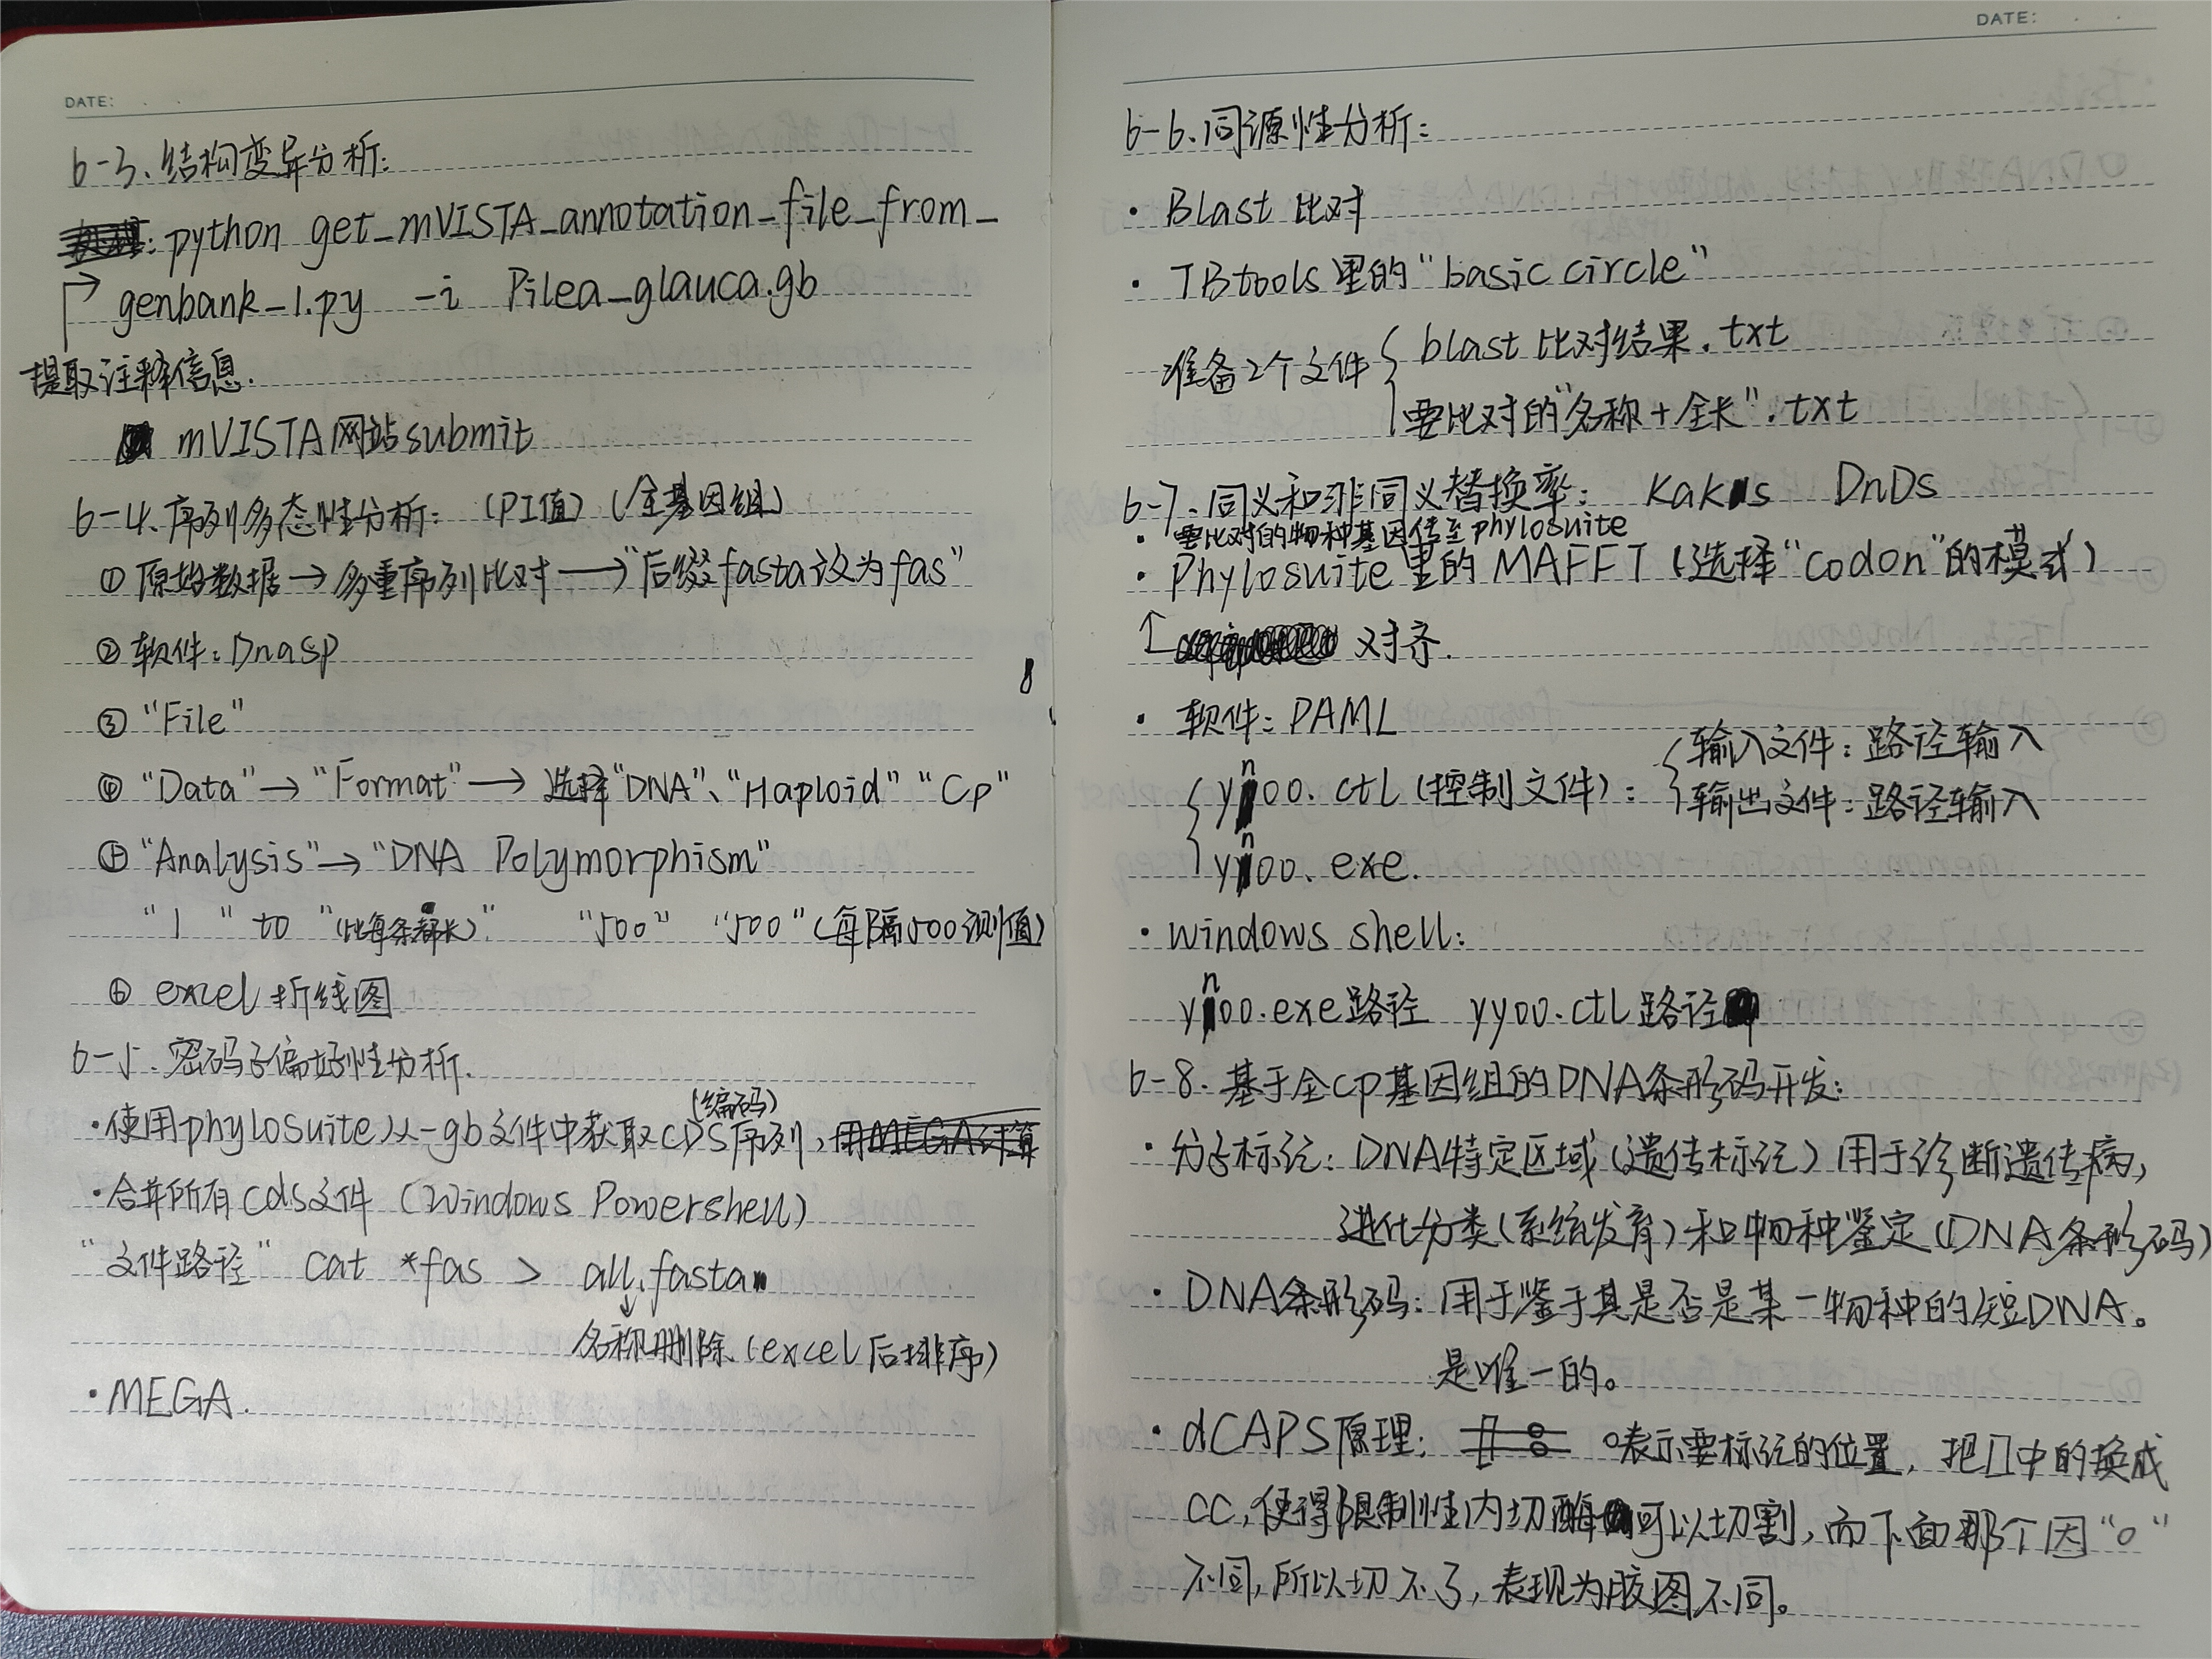 DATE: . .
6-3.结构变异分析:
: python get_mVISTA_annotation_file_from_
genbank_1.py -i Pilea_glauca.gb
提取注释信息.
mVISTA网站submit
6-4.序列多态性分析: (PI值) (全基因组)
① 原始数据→多重序列比对→"后缀fasta改为fas"
② 软件: Dnasp
③ "File"
④ "Data"→"Format"→选择"DNA"、"Haploid" "Cp"
⑤ "Analysis"→"DNA Polymorphism"
"1" to "(比每条都长)" "500" "500"(每隔500测值)
⑥ excel折线图
6-5.密码子偏好性分析.
(编码)
·使用phylosuite从-gb文件中获取CDS序列,用MEGA计算
·合并所有cds文件 (Windows Powershell)
"文件路径" cat *fas > all.fasta
↓
名称删除(excel后排序)
·MEGA.
8
DATE: . .
6-6.同源性分析:
· Blast 比对
· TBtools里的"basic circle"
准备2个文件 { blast比对结果.txt
要比对的"名称+全长".txt
6-7.同义和非同义替换率: kaks DnDs
· 要比对的物种基因传至phylosuite
· Phylosuite里的MAFFT(选择"codon"的模式)
↑ 对齐.
· 软件: PAML
{ yn00.ctl(控制文件): { 输入文件:路径输入
输出文件:路径输入
yn00.exe.
· windows shell:
yn00.exe路径 yy00.ctl路径
6-8.基于全cp基因组的DNA条形码开发:
· 分子标记: DNA特定区域(遗传标记)用于诊断遗传病,
进化分类(系统发育)和物种鉴定(DNA条形码)
· DNA条形码:用于鉴于其是否是某一物种的短DNA。
是唯一的。
· dCAPS原理: o表示要标记的位置,把囗中的换成
CC,使得限制性内切酶可以切割,而下面那个因"o"
不同,所以切不了,表现为胶图不同。